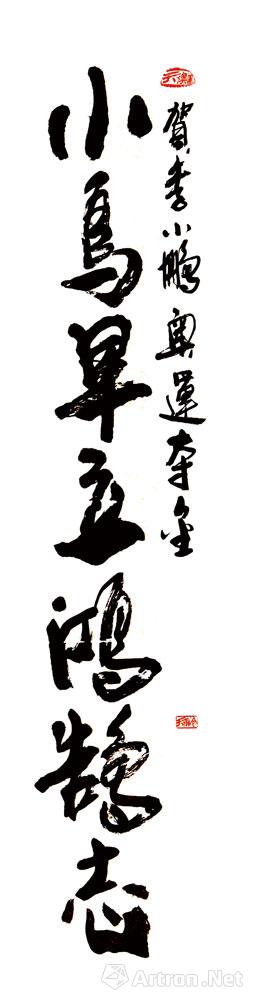 賀李小鵬奧運夺金
小鳥早立鴻鵠志
Artron.Net